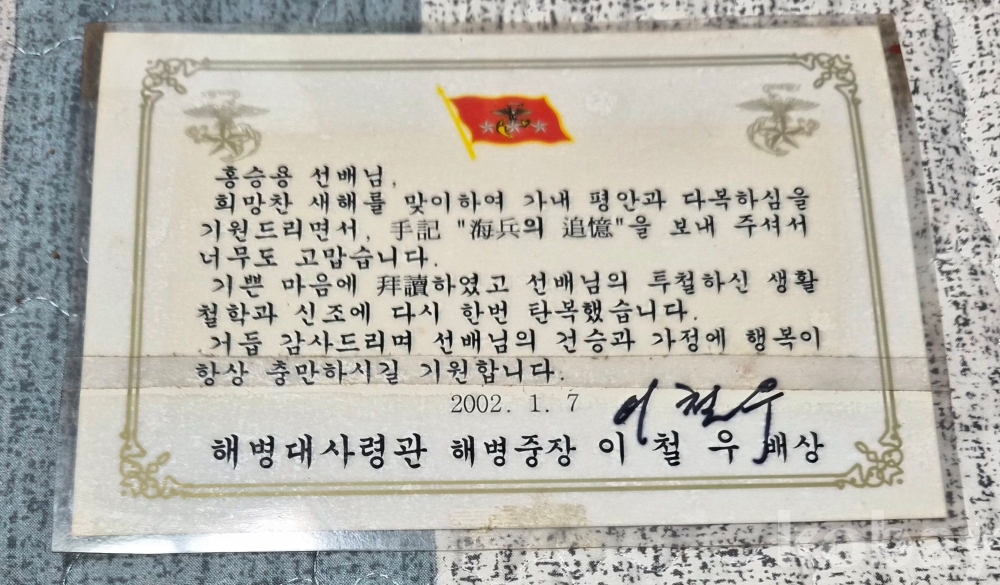 홍승용 선배님,
희망찬 새해를 맞이하여 가내 평안과 다복하심을
기원드리면서, 手記 "海兵의 追憶"을 보내 주셔서
너무도 고맙습니다.
기쁜 마음에 拜讀하였고 선배님의 투철하신 생활
철학과 신조에 다시 한번 탄복했습니다.
거듭 감사드리며 선배님의 건승과 가정에 행복이
항상 충만하시길 기원합니다.
2002. 1. 7
이철우
해병대사령관 해병중장 이 철 우 배상